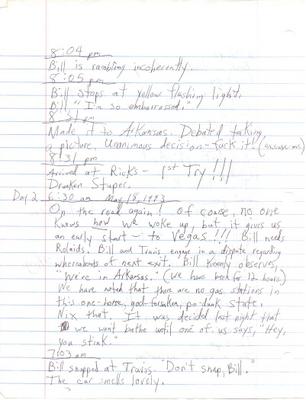 8:04 pm
Bill is rambling incoherently.
8:05 pm
Bill stops at yellow flashing light.
Bill "I'm so embarrassed."
8:21 pm
Made it to Arkansas. Debated taking
a picture. Unanimous decision - fuck it!
8:31 pm
Arrived at Rick's - 1st Try!!!
Drunken Stuper.
Day 2 6:30 am May 19, 1993
On the road again! of coarse, no one
knows how we woke up, but it gives us
an early start - to Vegas!!! Bill needs
Rolaids. Bill and Travis engage in a dispute regarding
whereabouts of next exit. Bill Keenly observes,
"We're in Arkansas." (We have been for 12 hours)
We have noted that there are no gas stations in
this one-horse, god-forsaken, po-dunk state.
Nix that. It was decided last night that
we wont bathe until one of us says, "Hey,
you stink."
7:03 am
Bill snapped at Travis. "Don't snap, Bill."
The car smells lovely.